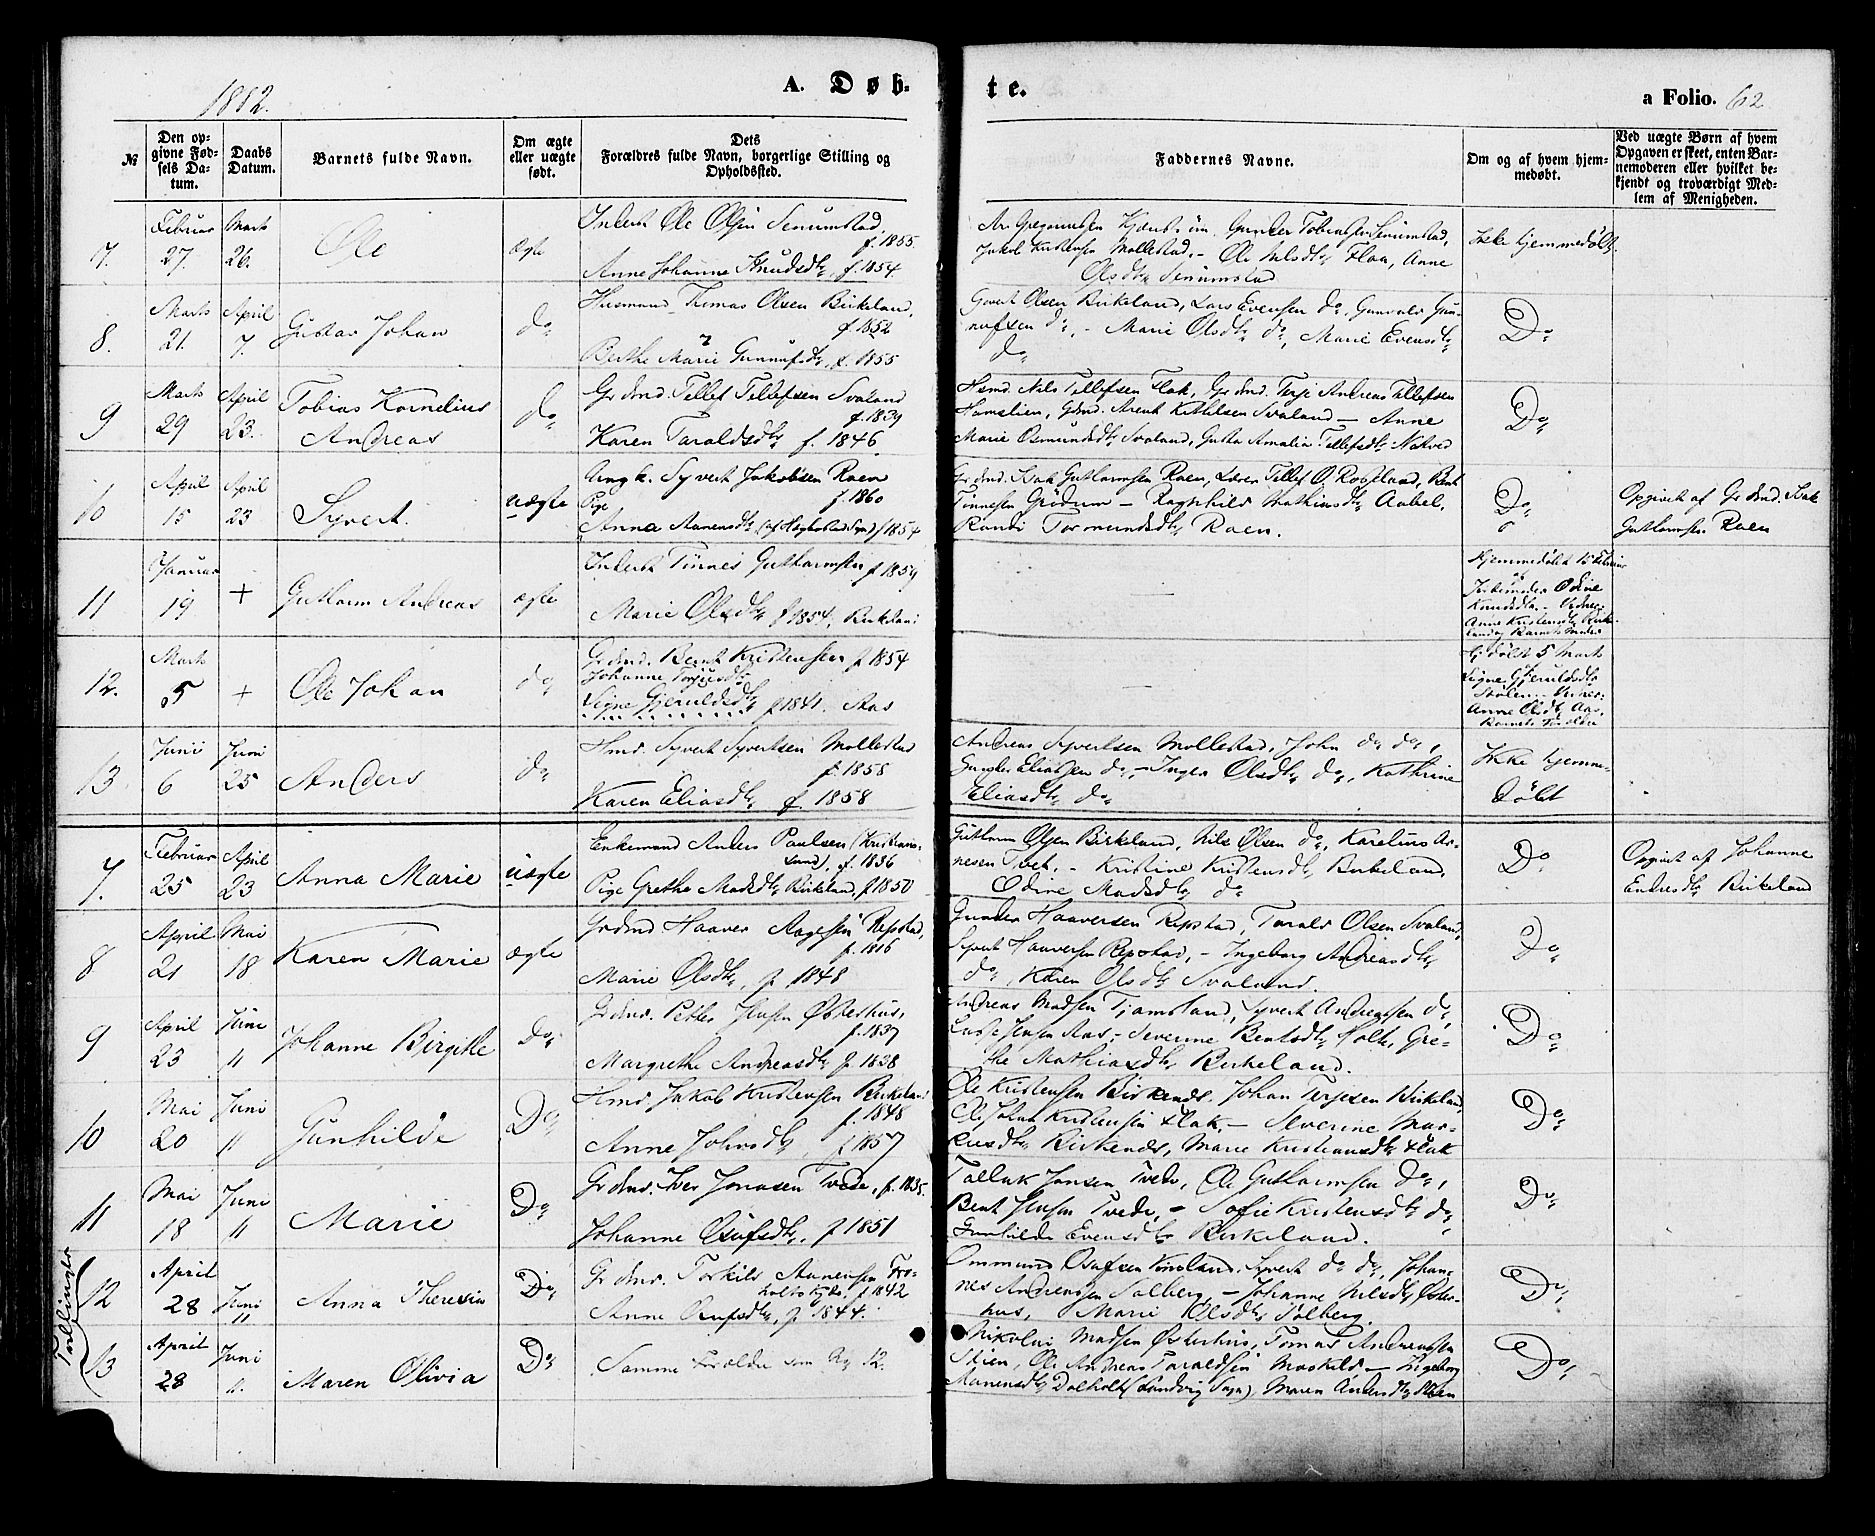 1882.
A. Døb-
te.
a Folio. 62
№
Den op-
givne Fød-
sels Da-
tum.
Daabs
Datum.
Barnets fulde Navn.
Om ægte
eller uægte
født.
Dets
Forældres fulde Navn, borgerlige Stilling og
Opholdssted.
Faddernes Navne.
Om og af hvem hjem-
medøbt.
Ved uægte Børn af hvem
Opgaven er skeet, enten Bar-
nemoderen eller hvilket be-
kjendt og troværdigt Med-
lem af Menigheden.
7.
Februar
27.
Marts
26.
Ole
Ægte
Inderst Ole Olsen Senumstad,
f. 1855
Anne Johanne Knudsdtr, f. 1854.
Gunder Tobiassen Senumstad,
Jakob Kristensen Mollestad, - Ole Nelsdtr Flaa, Anne
Olsdtr Senumstad
Ikke hjemmedøbt.
8.
Marts
21.
April
7.
Gustav Johan
do
Husmand Tomas Olsen Birkeland,
f. 1852
Berthe Marie Gunnufsdtr, f. 1855
Govert Olsen Birkeland, Lars Evensen do, Gunvald Gun-
nufsen do, - Marie Olsdtr do, Marie Evensdtr
do
Do
9
Marts
29
April
23.
Tobias Kornelius
Andreas
do
Grdmd. Tellef Tellefsen Svaland
f. 1839
Karen Taraldsdtr f. 1846.
Hsmd. Nils Tellefsen Flak, Grdmd. Terje Andreas Tellefsen
Hamslien, Gdmd. Arent Kittelsen Svaland - Anne
Marie Osmundsdtr Svaland, Gusta Amalia Tellefsdtr Natved
Do
10
April
15
April
23
Syvert.
uægte
Ungk. Syvert Jakobsen Raen
f. 1860
Pige
Anna Aanensdtr (af Høgsestad Sogn) f 1854
Grdmd. Isak Guttormsen Raen, Lærer Tellef O. Rosseland, Bent
Tinnesen Grødum - Ragnhild Mathiasdtr Aabel,
Randi Tormundsdtr Raen.
Do
Opgivet af Grdmd. Isak
Guttormsen Raen
11
Januar
19
+
Guttorm Andreas
ægte
Inderst Tinnes Guttormsen f 1859
Marie Olsdtr f 1854, Birkeland
Hjemmedøbt 15 Februar
af
Jordemoder Odine
Knudsdtr. - Vidner:
Anne Kristensdtr Birke-
land og Barnets Moder
12.
Marts
5
+
Ole Johan
do
Grdmd. Bent Kristensen f 1854
Johanne Terjesdtr
Signe Gjeruldsdtr f 1841. Aas
hjdøbt 5 Marts
af
Signe Gjeruldsdtr
Stølen. - Vidner:
Anne Olsdtr Aas,
Barnets Forældre
13
Juni
6
Juni
25
Anders
do
Hmd. Syvert Syvertsen Mollestad
f. 1858
Karen Eliasdtr f. 1858
Andreas Syvertsen Mollestad, John do do,
Gunder Eliassen do, - Inger Olsdtr do, Kathrine
Eliasdtr do
Ikke hjemme-
døbt
7.
Februar
25
April
23
Anna Marie
uægte
Enkemand Anders Paulsen (Kristian-
sand), f. 1836
Pige Grethe Madsdtr Birkeland, f 1850
Guttorm Olsen Birkeland, Nils Olsen do, Karelius Ar-
nesen Tvet. - Kristine Kristensdtr Birkeland
Odine Madsdtr do
Do
Opgivet af Johanne
Endresdtr Birkeland
8
April
21
Mai
18
Karen Marie
ægte
Grdmd Haaver Aagesen Repstad,
f. 1816
Marie Olsdtr, f. 1848
Gunder Haaversen Repstad, Tarald Olsen Svaland,
Syvert Haaversen Repstad, - Ingeborg Andreasdtr
do, Karen Olsdtr Svaland.
Do
9
April
23
Juni
11
Johanne Birgitte
Do
Grdmd. Petter Jensen Østerhus,
f. 1837
Margrethe Andreasdtr f. 1838
Andreas Madsen Tjamsland, Syvert Andreassen do,
Lasse Jensen Aas - Severine Bentsdtr Holte, Gre-
the Mathiasdtr Birkeland.
Do
10
Mai
20
Juni
11
Gunhilde
Do
Hmd. Jakob Kristensen Birkeland
f. 1848
Anne Johnsdtr, f 1857
Ole Kristensen Birkenes, Johan Terjesen Birkeland,
Ole Johan Kristensen Flak, - Severine Mar-
kusdtr Birkenes, Marie Kristiansdtr Flak
Do
11
Mai
18
Juni
11
Marie
Do
Grdmd. Iver Jonasen Tvede, f. 1835.
Johanne Osufsdtr. f 1851
Tallak Jensen Tvede, Ole Guttormsen do,
Bent Jensen Tvede, - Sofie Kristensdtr do,
Gunhilde Evensdtr Birkeland.
Do
Tvillinger
12
April
28
Juni
11
Anna Theresia
Do
Grdmd. Torkild Aanensen Tro-
f. 1842
Anne Osufsdtr, f. 1844.
Ommund Osufsen Tonsland, Syvert do do, Johan-
nes Andreassen Solberg, - Johanne Nilsdtr Øster-
hus, Marie Olsdtr Solberg.
Do
13
April
28
Juni
11.
Maren Olivia
Do
Samme Forældre som No 12.
Nikolai Madsen Østerhus, Tomas Andreassen
Skien, Ole Andreas Taraldsen Moskild - Ingeborg
Aanensdtr Dalholt (Landvig Sogn), Maren Andersdtr Skien
Do